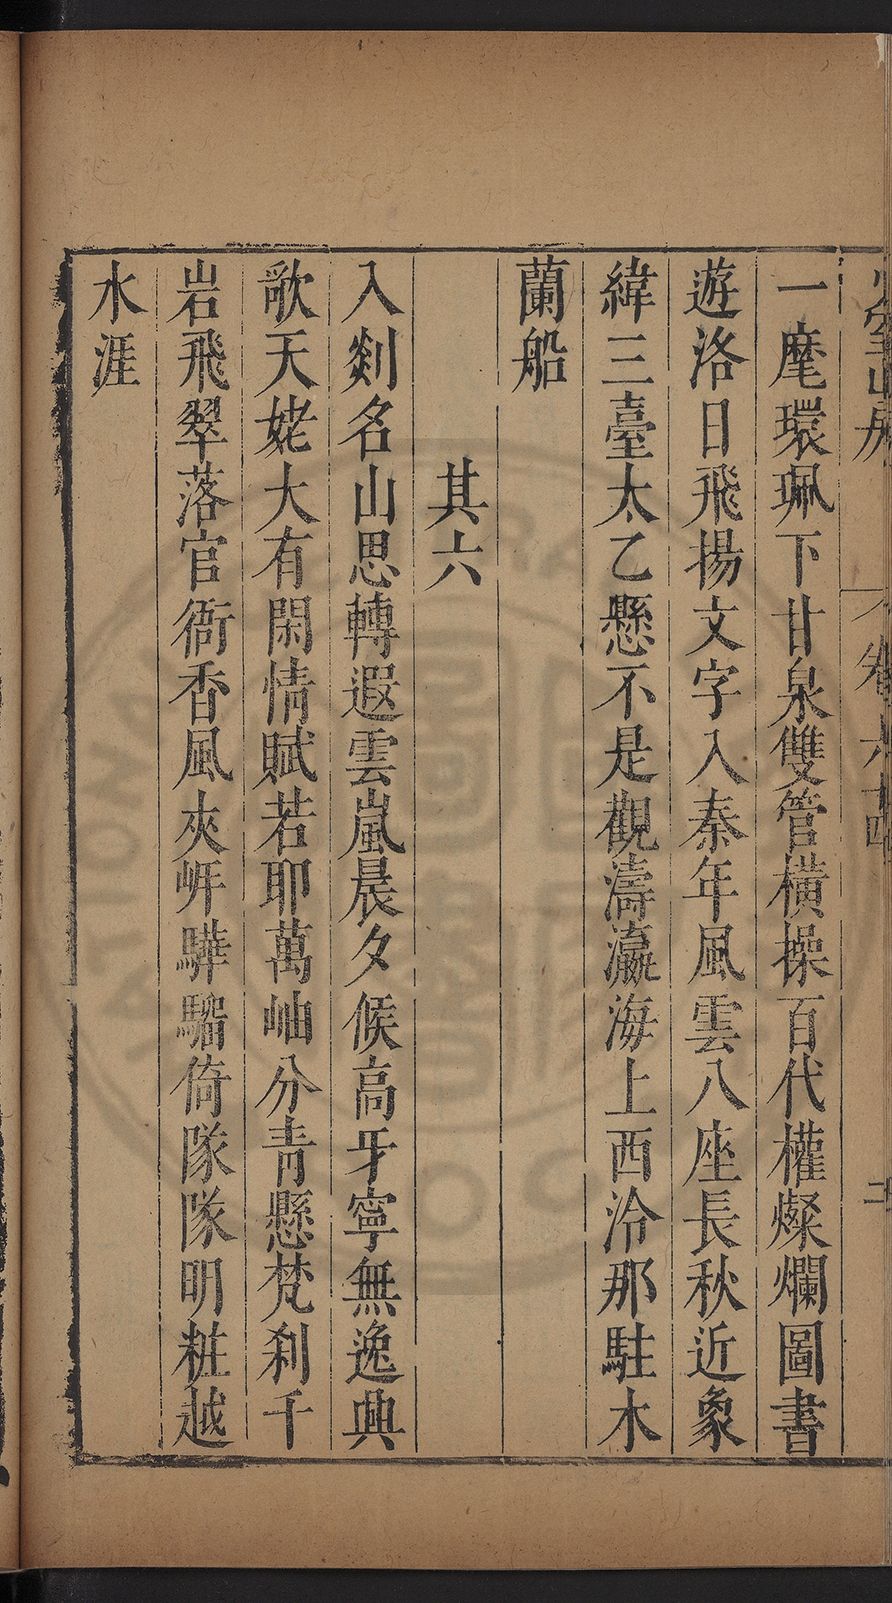 一麾環珮下甘泉雙管橫操百代權燦爛圖書
遊洛日飛揚文字入秦年風雲八座長秋近象
緯三臺太乙懸不是觀濤瀛海上西泠那駐木
蘭船
其六
入剡名山思轉遐雲嵐晨夕候高牙寧無逸興
歌天姥大有閑情賦若耶萬岫分青懸梵刹千
岩飛翠落官衙香風夾岍驊騮倚隊隊明粧越
水涯